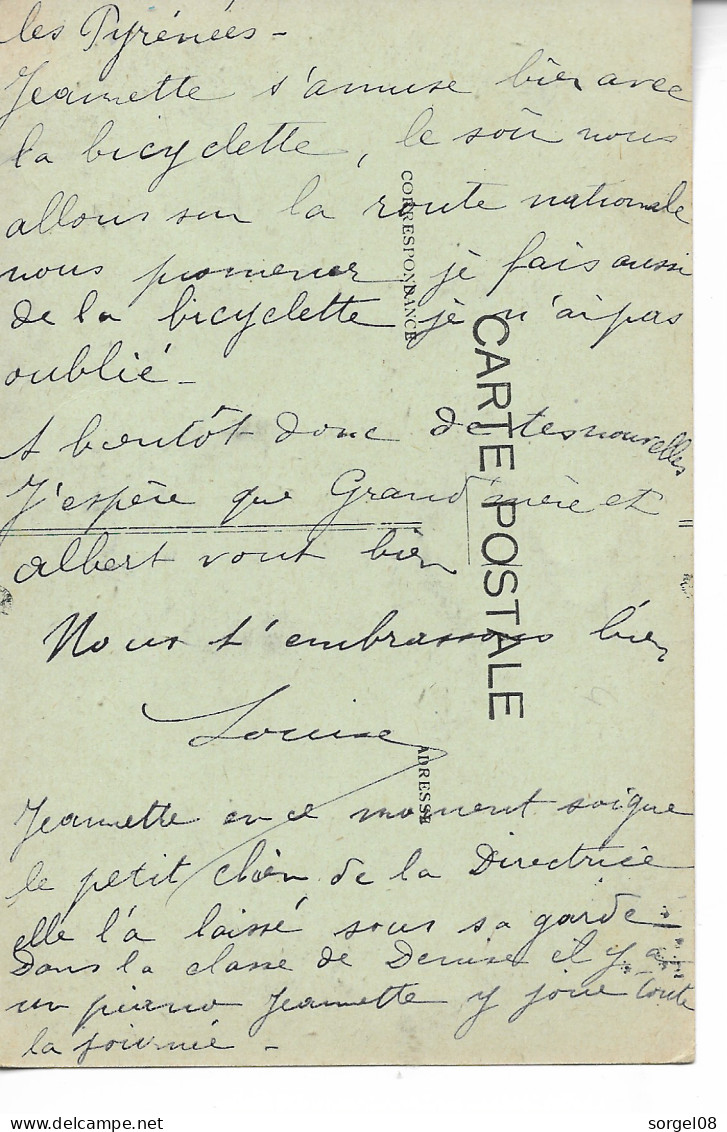 les Pyrénées -
Jeannette s'amuse bien avec
la bicyclette, le soir nous
allons sur la route nationale
nous promener je fais aussi
de la bicyclette je n'ai pas
oublié -
A bientôt donc de tes nouvelles
J'espère que Grand'mère et
Albert vont bien
Nous t'embrassons bien
Louise
Jeannette en ce moment soigne
le petit chien de la Directrice
elle l'a laissé sous sa garde
Dans la classe de Denise il y a
un piano Jeannette y joue toute
la journée -
CORRESPONDANCE
CARTE POSTALE
ADRESSE
sorgel08